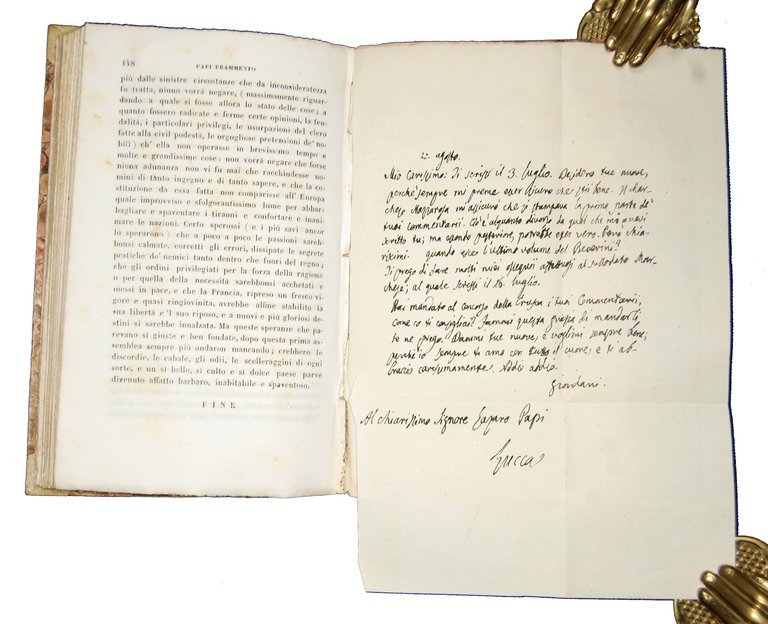 148 PAPI FRAMMENTO
più dalle sinistre circostanze che da inconsideratezza
fu tratta, niuno vorrà negare, (massimamente riguar-
dando a quale si fosse allora lo stato delle cose; a
quanto fossero radicate e ferme certe opinioni, la feu-
dalità, i particolari privilegi, le usurpazioni del clero
fatte alla civil podestà, le orgogliose pretensioni de' no-
bili) ch' ella non operasse in brevissimo tempo e
molte e grandissime cose: non vorrà negare che forse
niuna adunanza non vi fu mai che racchiudesse uo-
mini di tanto ingegno e di tanto sapere, e che la co-
stituzione da essa fatta non comparisse all' Europa
quale improvviso e sfolgorantissimo lume per abbar-
bagliare e spaventare i tiranni e confortare e inani-
mare le nazioni. Certo sperossi (e i più savi ancor
lo sperarono) che a poco a poco le passioni sareb-
bonsi calmate, corretti gli errori, dissipate le segrete
pratiche de' nemici tanto dentro che fuori del regno;
che gli ordini privilegiati per la forza della ragione
o per quella della necessità sarebbonsi acchetati e
messi in pace, e che la Francia, ripreso un fresco vi-
gore e quasi ringiovinita, avrebbe alfine stabilito la
sua libertà e 'l suo riposo, e a nuovi e più gloriosi de-
stini si sarebbe innalzata. Ma queste speranze che pa-
revano si giuste e ben fondate, dopo questa prima as-
semblea sempre più andaron mancando; crebbero le
discordie, le cabale, gli odii, le scelleraggini di ogni
sorte, e un sì bello, sì culto e sì dolce paese parve
divenuto affatto barbaro, inabitabile e spaventoso.
FINE
agosto.
Mio Carissimo: Ti scrissi il 3. luglio. Desidero tue nuove,
perchè sempre mi preme esser sicuro che stai bene. Il Mar-
chese Mazzarosa mi assicurò che si stampava la prima parte de'
tuoi Commentarii. Ciò è alquanto diverso da quel che mi avevi
scritto tu; ma essendo posteriore, potrebbe esser vero.
quando esce l'ultimo volume del
Ti prego di dare molti miei ossequii affettuosi al sullodato Mar-
chese, al quale scrissi il 16. luglio.
Hai mandato al concorso della Crusca i tuoi Commentarii,
come io ti consigliai? Fammi questa grazia di mandarli,
te ne prego. Dammi tue nuove, e voglimi sempre bene;
perch'io sempre ti amo con tutto il cuore, e ti ab-
braccio carissimamente. Addio addio.
Giordani.
Al chiarissimo Signore Lazaro Papi
Lucca